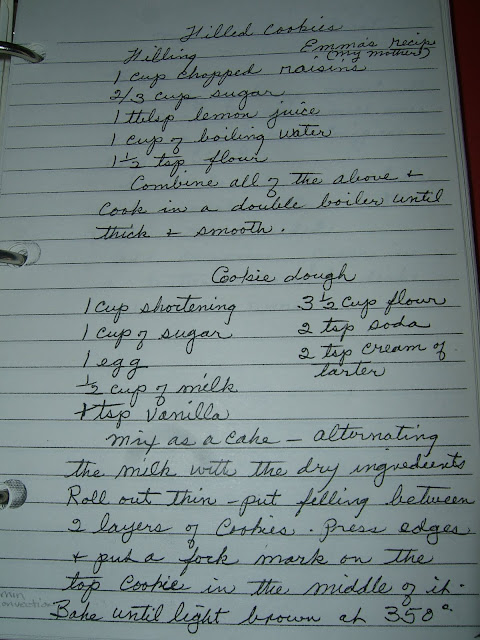 Filled Cookies
Filling Emma's recip
(my mother)
1 cup chopped raisins
2/3 cup sugar
1 tblsp lemon juice
1 cup of boiling water
1 1/2 tsp flour
Combine all of the above +
cook in a double boiler until
thick + smooth.
Cookie dough
1 cup shortening 3 1/2 cup flour
1 cup of sugar 2 tsp soda
1 egg 2 tsp cream of
tarter
1/2 cup of milk
1 tsp vanilla
mix as a cake - alternating
the milk with the dry ingredients
Roll out thin - put filling between
2 layers of cookies. Press edges
+ put a fork mark on the
top cookie in the middle of it.
Bake until light brown at 350°
min